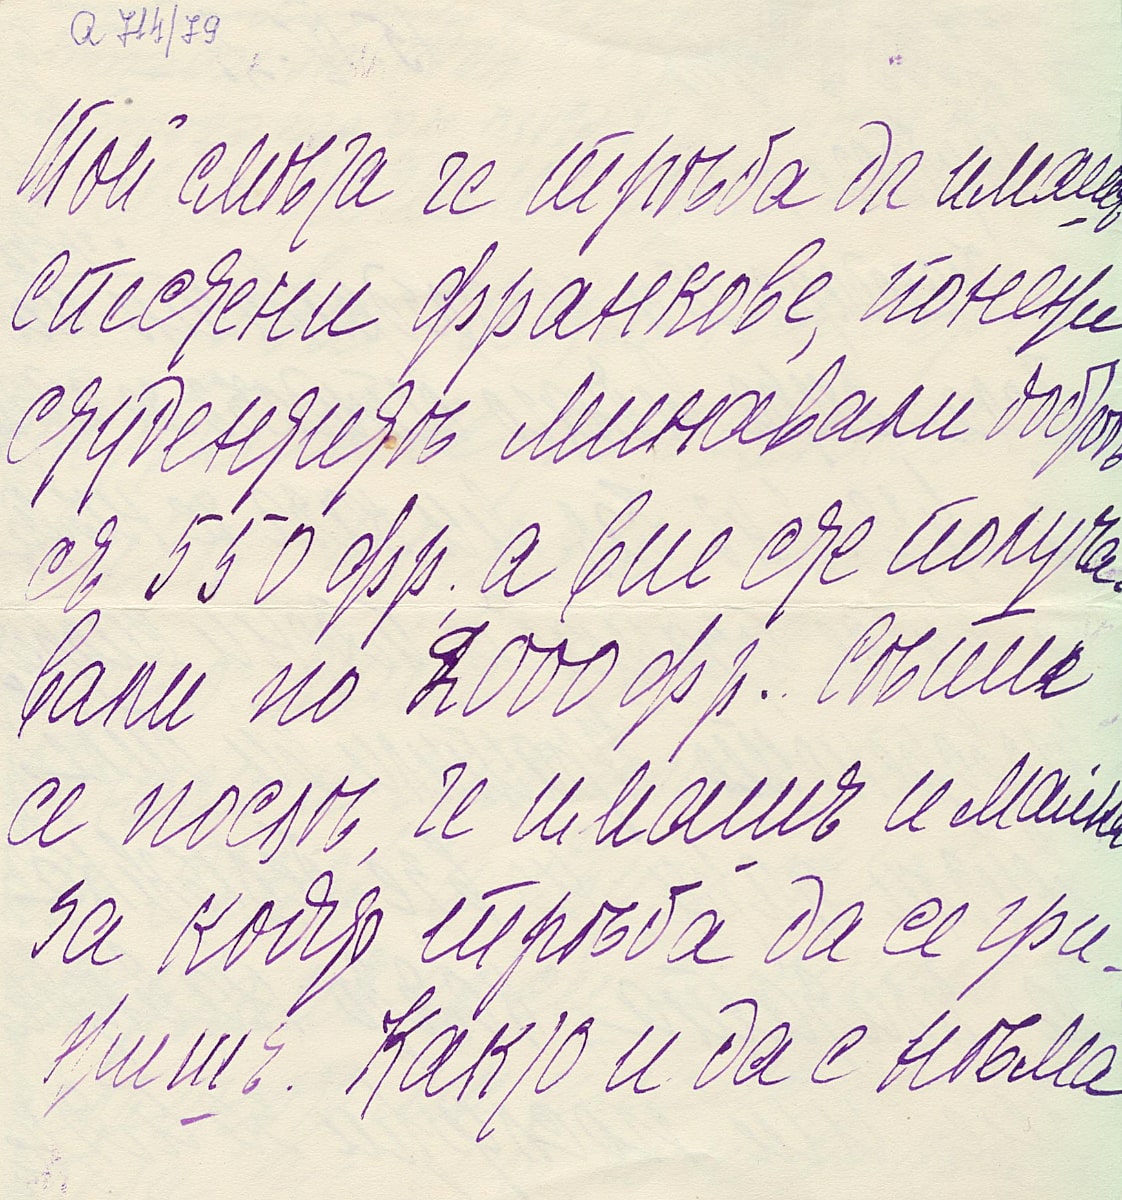 а 714/79
Той смѣта че трѣба да имашъ
спестени франкове, понеже
студентитѣ минавали добрѣ
съ 550 фр. а вие сте получа-
вали по 2000 фр. Съвсим
се посъв, че имашъ и майка
за която трѣба да се гри-
жишъ. Както и да е нѣма